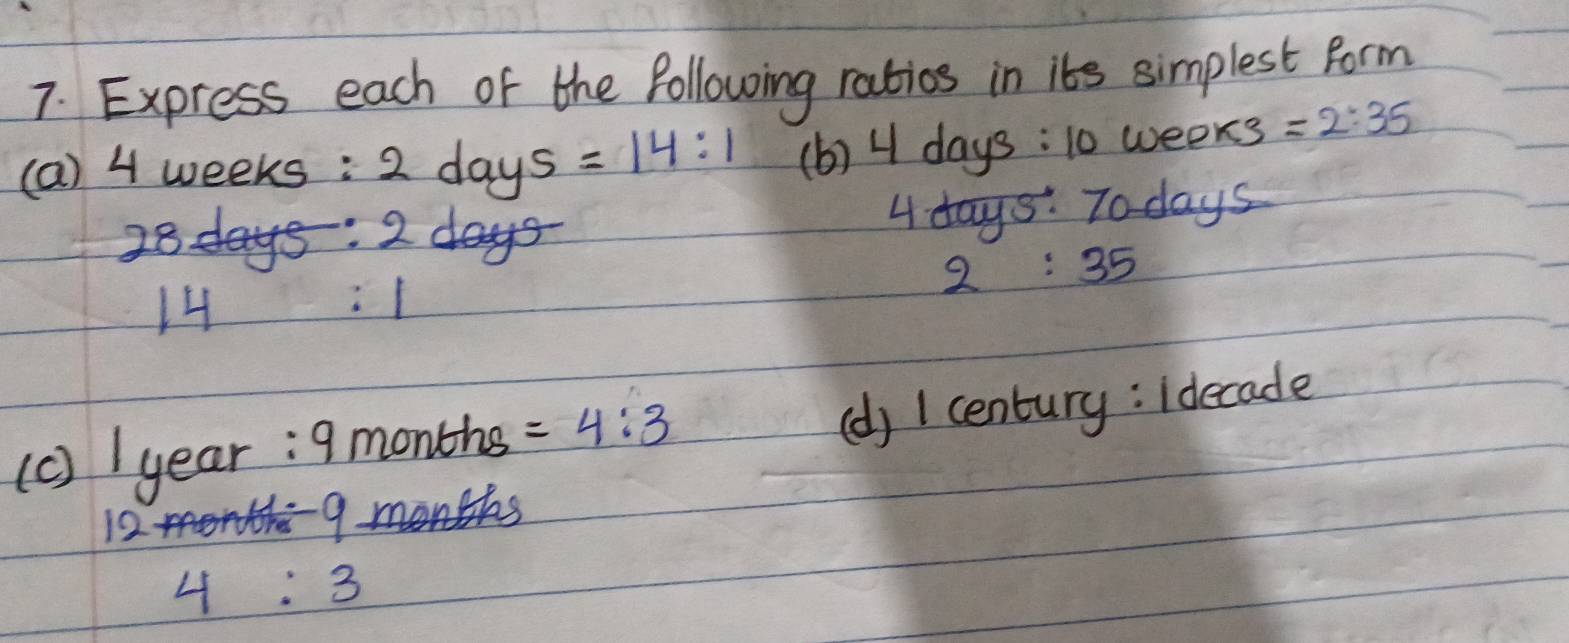 7. Express each of the following ratios in its simplest form
(a) 4 weeks : 2 days = 14 : 1 (b) 4 days : 10 weeks = 2 : 35
28 days : 2 days 4 days : 70 days
14 : 1 2 : 35
(c) 1 year : 9 months = 4 : 3 (d) 1 century : 1 decade
12 month : 9 months
4 : 3